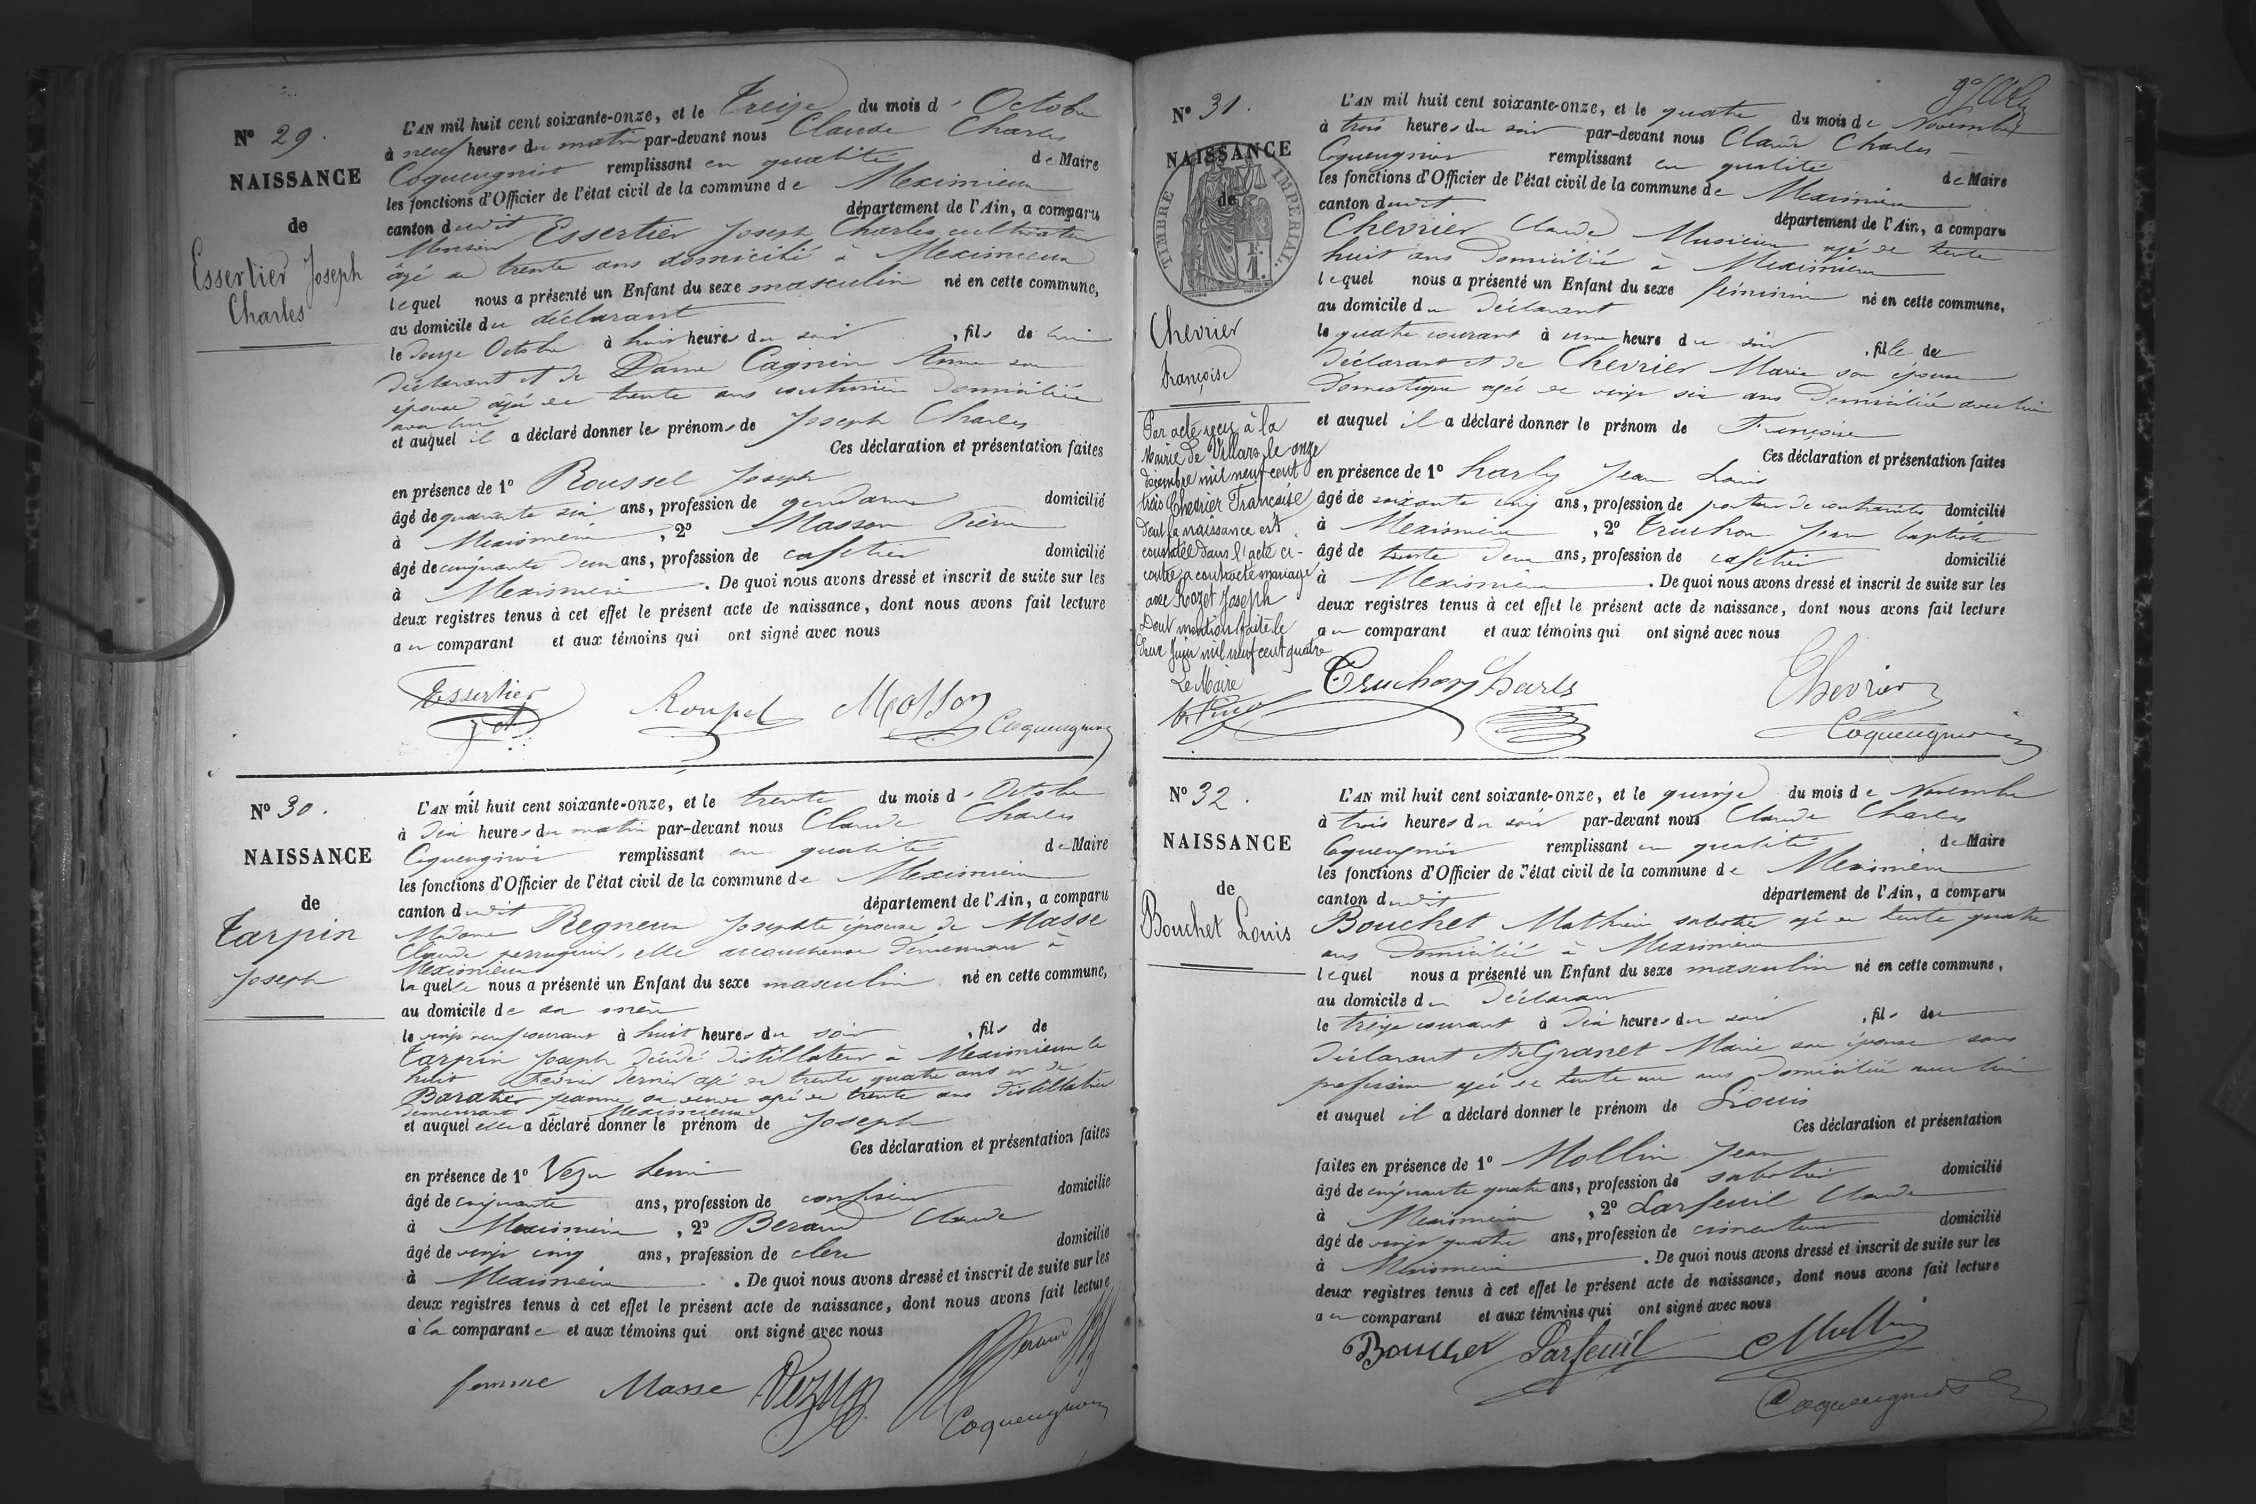 N° 29.
NAISSANCE
de
Essertier Joseph
Charles
L'AN mil huit cent soixante-onze, et le Treize du mois d' Octobre
à neuf heures du matin par-devant nous Claude Charles
Coqueugniot remplissant en qualité de Maire
les fonctions d'Officier de l'état civil de la commune de Meximieux
canton dudit département de l'Ain, a comparu
Monsieur Essertier Joseph Charles cultivateur
âgé de trente ans domicilié à Meximieux
lequel nous a présenté un Enfant du sexe masculin né en cette commune,
au domicile du déclarant
le douze Octobre à huit heures du soir, fils de lui
déclarant et de Dame Cagnin Anne son
épouse âgée de trente ans couturière domiciliée
avec lui
et auquel il a déclaré donner les prénoms de Joseph Charles
Ces déclaration et présentation faites
en présence de 1° Roussel Joseph
âgé de quarante six ans, profession de gendarme domicilié
à Meximieux, 2° Masson Pierre
âgé de cinquante deux ans, profession de cafetier domicilié
à Meximieux. De quoi nous avons dressé et inscrit de suite sur les
deux registres tenus à cet effet le présent acte de naissance, dont nous avons fait lecture
au comparant et aux témoins qui ont signé avec nous
Essertier Roussel Masson Coqueugniot
N° 30.
NAISSANCE
de
Tarpin
Joseph
L'AN mil huit cent soixante-onze, et le trente du mois d' Octobre
à dix heures du matin par-devant nous Claude Charles
Coqueugniot remplissant en qualité de Maire
les fonctions d'Officier de l'état civil de la commune de Meximieux
canton dudit département de l'Ain, a comparu
Madame Regneux Josephte épouse de Masse
Claude perruquier, elle accoucheuse demeurant à
Meximieux
laquelle nous a présenté un Enfant du sexe masculin né en cette commune,
au domicile de sa mère
le vingt neuf courant à huit heures du soir, fils de
Tarpin Joseph décédé distillateur à Meximieux le
huit Février dernier âgé de trente quatre ans et de
Baratier Jeanne sa veuve âgée de trente ans distillatrice
demeurant à Meximieux
et auquel elle a déclaré donner le prénom de Joseph
Ces déclaration et présentation faites
en présence de 1° Vezu
âgé de cinquante ans, profession de confiseur domicilié
à Meximieux, 2° Beraud Claude
âgé de vingt cinq ans, profession de clerc domicilié
à Meximieux. De quoi nous avons dressé et inscrit de suite sur les
deux registres tenus à cet effet le présent acte de naissance, dont nous avons fait lecture
à la comparante et aux témoins qui ont signé avec nous
femme Masse Vezu Beraud
Coqueugniot
N° 31.
NAISSANCE
de
TIMBRE IMPERIAL.
Chevrier
Françoise
Par acte reçu à la
Mairie de Villars le onze
décembre mil neuf cent
trois Chevrier Françoise
dont la naissance est
constatée dans l'acte ci-
contre a contracté mariage
avec Rozet Joseph
Dont mention faite le
Deux Juin mil neuf cent quatre
Le Maire
L'AN mil huit cent soixante-onze, et le quatre du mois de Novembre
à trois heures du soir par-devant nous Claude Charles
Coqueugniot remplissant en qualité de Maire
les fonctions d'Officier de l'état civil de la commune de Meximieux
canton dudit département de l'Ain, a comparu
Chevrier Claude Musicien âgé de trente
huit ans domicilié à Meximieux
lequel nous a présenté un Enfant du sexe féminin né en cette commune,
au domicile du déclarant
le quatre courant à une heure du soir, fille du
déclarant et de Chevrier Marie son épouse
domestique âgée de vingt six ans domiciliée avec lui
et auquel il a déclaré donner le prénom de Françoise
Ces déclaration et présentation faites
en présence de 1° Jean Louis
âgé de soixante cinq ans, profession de porteur de contraintes domicilié
à Meximieux, 2° Truchon Jean baptiste
âgé de trente deux ans, profession de cafetier domicilié
à Meximieux. De quoi nous avons dressé et inscrit de suite sur les
deux registres tenus à cet effet le présent acte de naissance, dont nous avons fait lecture
au comparant et aux témoins qui ont signé avec nous
Truchon Chevrier
Coqueugniot
N° 32.
NAISSANCE
de
Bouchet Louis
L'AN mil huit cent soixante-onze, et le quinze du mois de Novembre
à trois heures du soir par-devant nous Claude Charles
Coqueugniot remplissant en qualité de Maire
les fonctions d'Officier de l'état civil de la commune de Meximieux
canton dudit département de l'Ain, a comparu
Bouchet Mathieu sabotier âgé de trente quatre
ans domicilié à Meximieux
lequel nous a présenté un Enfant du sexe masculin né en cette commune,
au domicile du déclarant
le treize courant à dix heures du soir, fils du
déclarant et de Granet Marie son épouse sans
profession âgée de trente un ans domiciliée avec lui
et auquel il a déclaré donner le prénom de Louis
Ces déclaration et présentation
faites en présence de 1° Mollin Jean
âgé de cinquante quatre ans, profession de sabotier domicilié
à Meximieux, 2° Larfeuil Claude
âgé de vingt quatre ans, profession de cimenteur domicilié
à Meximieux. De quoi nous avons dressé et inscrit de suite sur les
deux registres tenus à cet effet le présent acte de naissance, dont nous avons fait lecture
au comparant et aux témoins qui ont signé avec nous
Bouchet Larfeuil Mollin
Coqueugniot